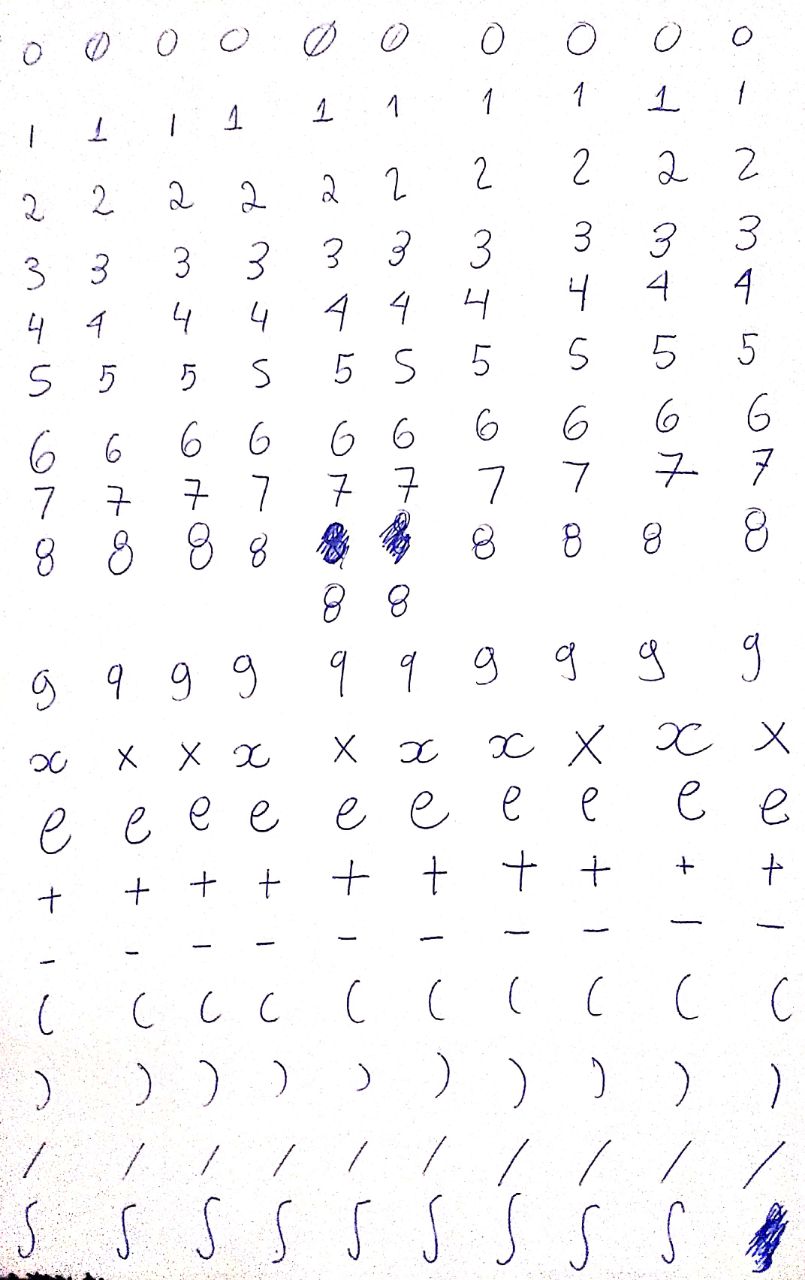 0 0 0 0 0 0 0 0 0 0
1 1 1 1 1 1 1 1 1 1
2 2 2 2 2 2 2 2 2 2
3 3 3 3 3 3 3 3 3 3
4 4 4 4 4 4 4 4 4 4
5 5 5 5 5 5 5 5 5 5
6 6 6 6 6 6 6 6 6 6
7 7 7 7 7 7 7 7 7 7
8 8 8 8 8 8 8 8
8 8
9 9 9 9 9 9 9 9 9 9
x x x x x x x x x x
e e e e e e e e e e
+ + + + + + + + + +
- - - - - - - - - -
( ( ( ( ( ( ( ( ( (
) ) ) ) ) ) ) ) ) )
/ / / / / / / / / /
∫ ∫ ∫ ∫ ∫ ∫ ∫ ∫ ∫